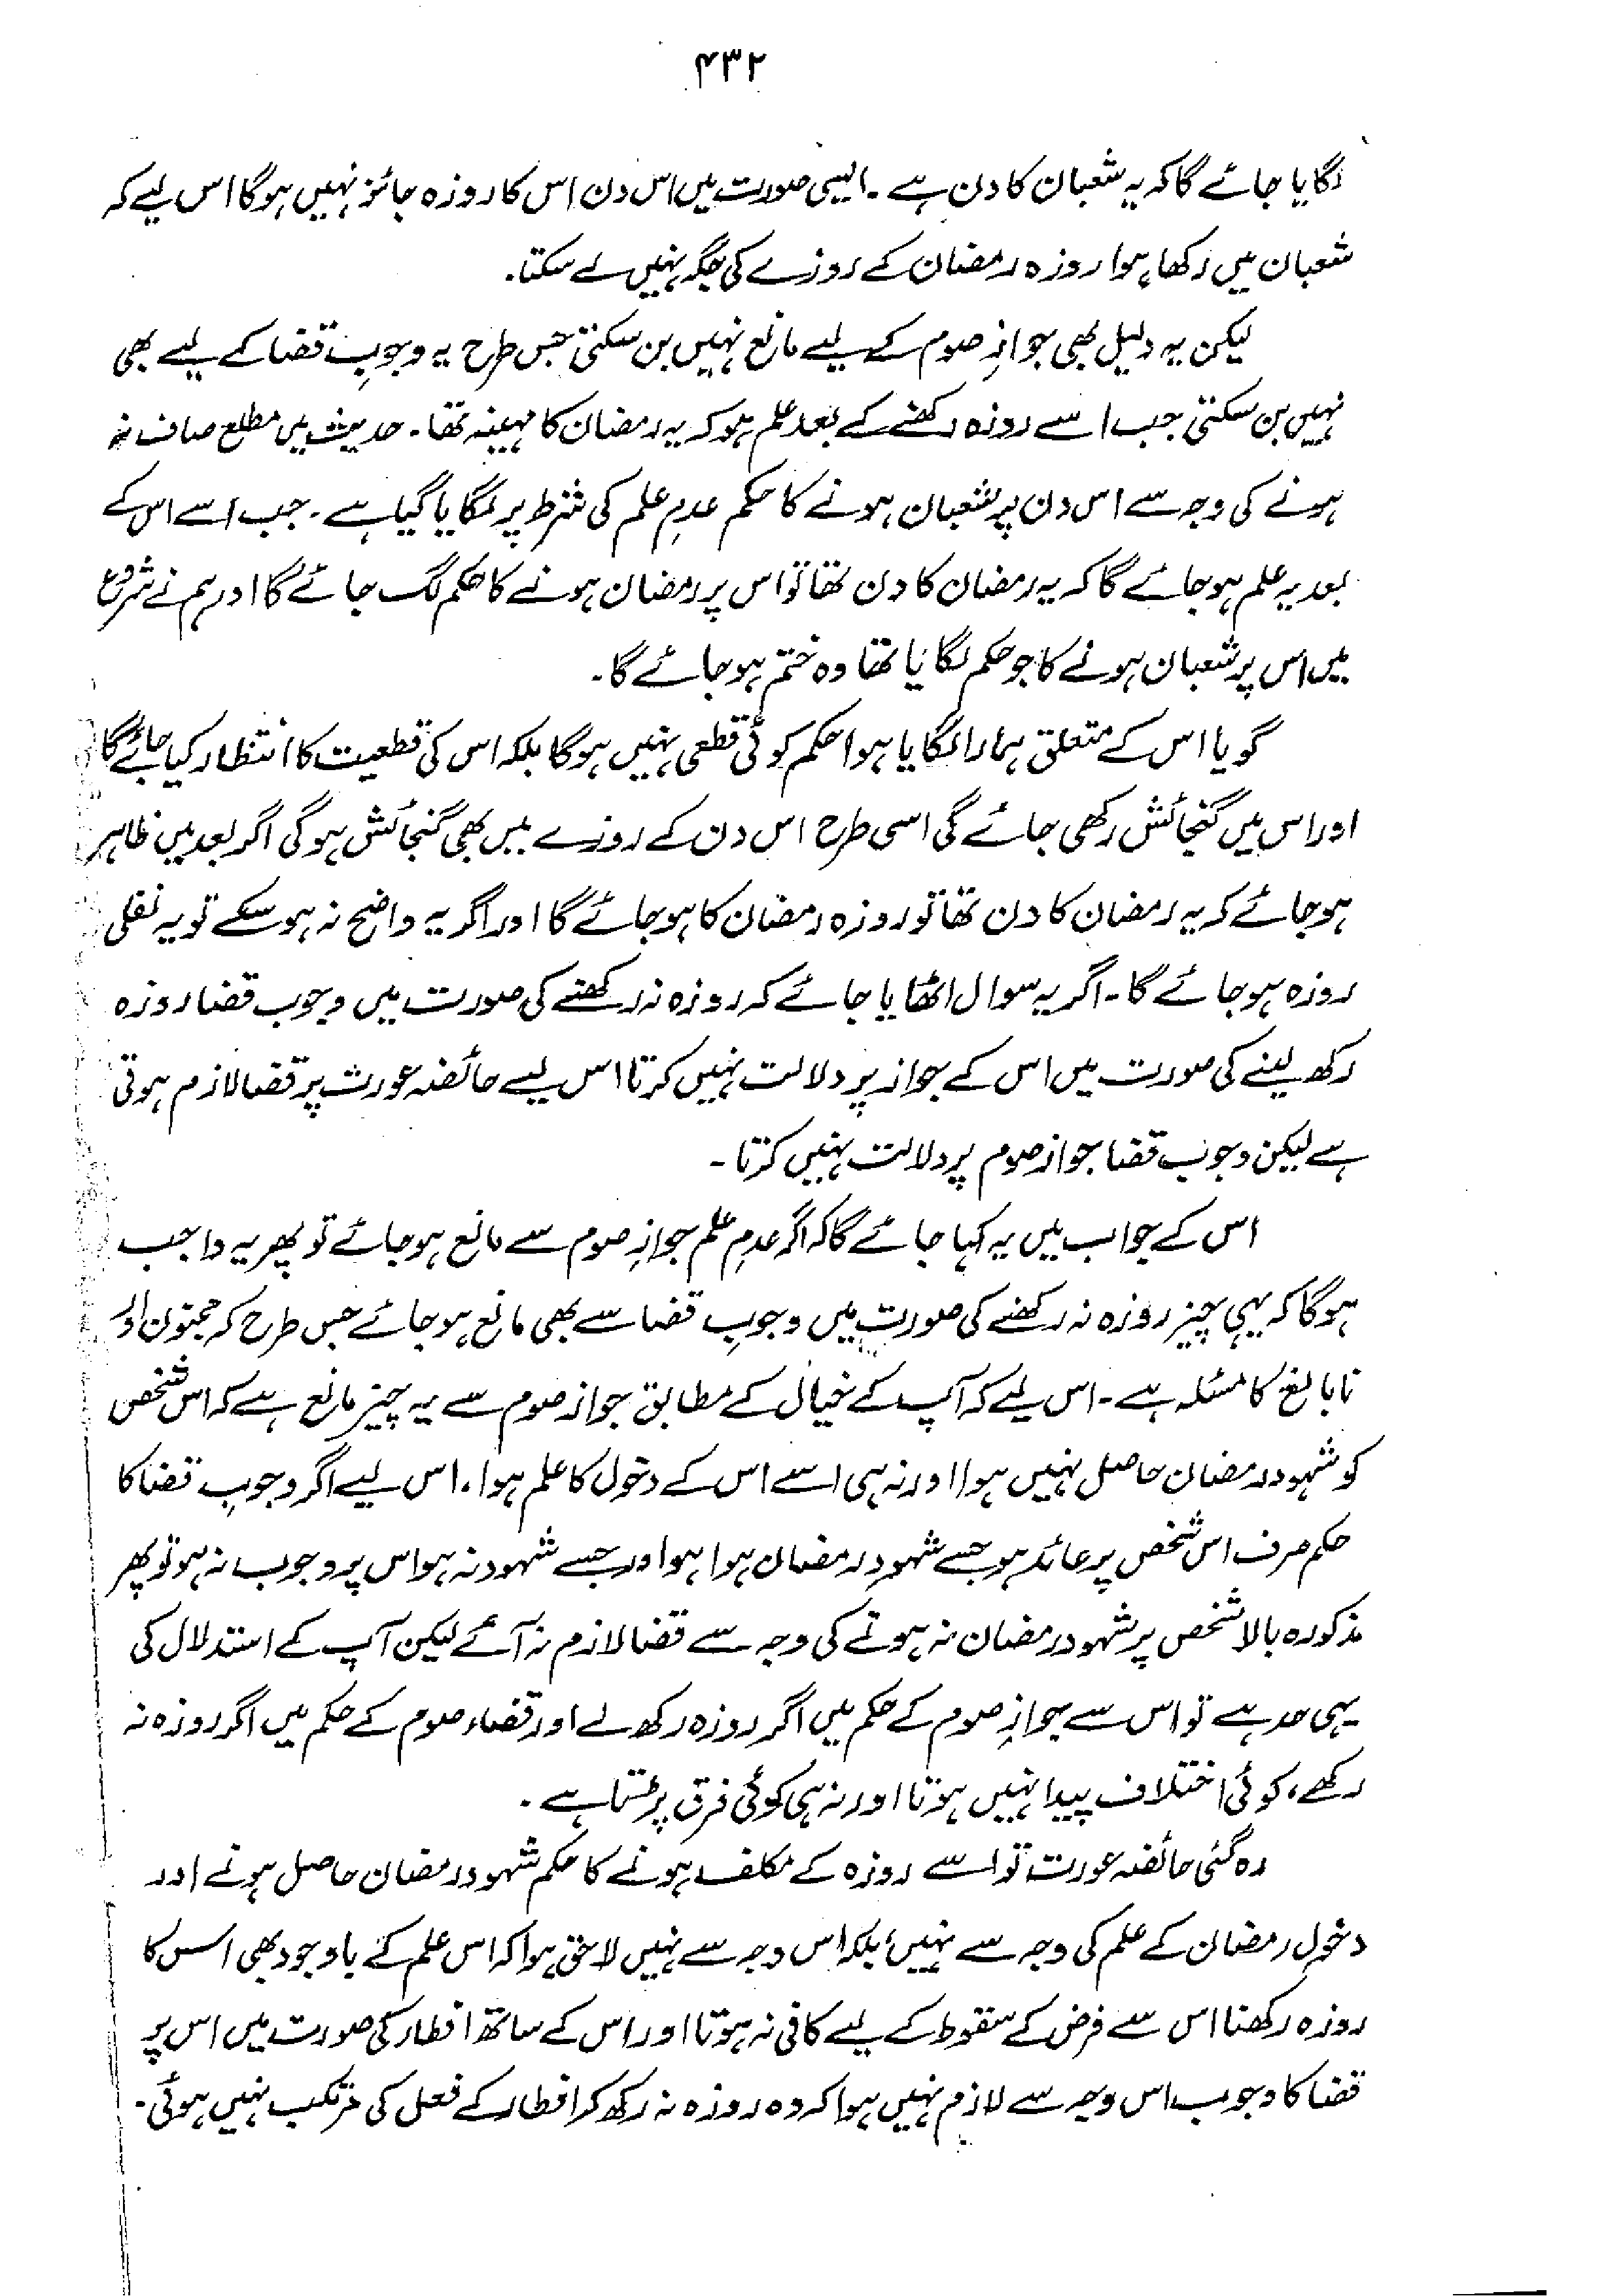 ۴۳۲
لگایا جائے گا کہ یہ شعبان کا دن ہے۔ ایسی صورت میں اس دن اس کا روزہ جائز نہیں ہوگا اس لیے کہ
شعبان میں رکھا ہوا روزہ رمضان کے روزے کی جگہ نہیں لے سکتا۔
لیکن یہ دلیل بھی جوازِ صوم کے لیے مانع نہیں بن سکتی جس طرح یہ وجوبِ قضا کے لیے بھی
نہیں بن سکتی جب اسے روزہ رکھنے کے بعد علم ہو کہ یہ رمضان کا مہینہ تھا۔ حدیث میں مطلع صاف نہ
ہونے کی وجہ سے اس دن پر شعبان ہونے کا حکم عدمِ علم کی شرط پر لگایا گیا ہے۔ جب اسے اس کے
بعد یہ علم ہو جائے گا کہ یہ رمضان کا دن تھا تو اس پر رمضان ہونے کا حکم لگ جائے گا اور ہم نے شروع
میں اس پر شعبان ہونے کا جو حکم لگایا تھا وہ ختم ہو جائے گا۔
گویا اس کے متعلق ہمارا لگایا ہوا حکم کوئی قطعی نہیں ہوگا بلکہ اس کی قطعیت کا انتظار کیا جائے گا
اور اس میں گنجائش رکھی جائے گی اسی طرح اس دن کے روزے میں بھی گنجائش ہوگی اگر بعد میں ظاہر
ہو جائے کہ یہ رمضان کا دن تھا تو روزہ رمضان کا ہو جائے گا اور اگر یہ واضح نہ ہو سکے تو یہ نفلی
روزہ ہو جائے گا۔ اگر یہ سوال اٹھایا جائے کہ روزہ نہ رکھنے کی صورت میں وجوب قضا روزہ
رکھ لینے کی صورت میں اس کے جواز پر دلالت نہیں کرتا اس لیے حائضہ عورت پر قضا لازم ہوتی
ہے لیکن وجوب قضا جواز صوم پر دلالت نہیں کرتا۔
اس کے جواب میں یہ کہا جائے گا کہ اگر عدمِ علم جوازِ صوم سے مانع ہو جائے تو پھر یہ واجب
ہوگا کہ یہی چیز روزہ نہ رکھنے کی صورت میں وجوبِ قضا سے بھی مانع ہو جائے جس طرح کہ مجنون اور
نابالغ کا مسئلہ ہے۔ اس لیے کہ آپ کے خیال کے مطابق جواز صوم سے یہ چیز مانع ہے کہ اس شخص
کو شہود رمضان حاصل نہیں ہوا اور نہ ہی اسے اس کے دخول کا علم ہوا۔ اس لیے اگر وجوبِ قضا کا
حکم صرف اس شخص پر عائد ہو جسے شہودِ رمضان ہوا ہو اور جسے شہود نہ ہو اس پر وجوب نہ ہو تو پھر
مذکورہ بالا شخص پر شہود رمضان نہ ہونے کی وجہ سے قضا لازم نہ آئے لیکن آپ کے استدلال کی
یہی حد ہے تو اس سے جوازِ صوم کے حکم میں اگر روزہ رکھ لے اور قضاء صوم کے حکم میں اگر روزہ نہ
رکھے، کوئی اختلاف پیدا نہیں ہوتا اور نہ ہی کوئی فرق پڑتا ہے۔
رہ گئی حائضہ عورت تو اسے روزہ کے مکلف ہونے کا حکم شہود رمضان حاصل ہونے اور
دخول رمضان کے علم کی وجہ سے نہیں بلکہ اس وجہ سے نہیں لاحق ہوا کہ اس علم کے باوجود بھی اس کا
روزہ رکھنا اس سے فرض کے سقوط کے لیے کافی نہ ہوتا اور اس کے ساتھ افطار کی صورت میں اس پر
قضا کا وجوب اس وجہ سے لازم نہیں ہوا کہ وہ روزہ نہ رکھ کر افطار کے فعل کی مرتکب نہیں ہوئی۔